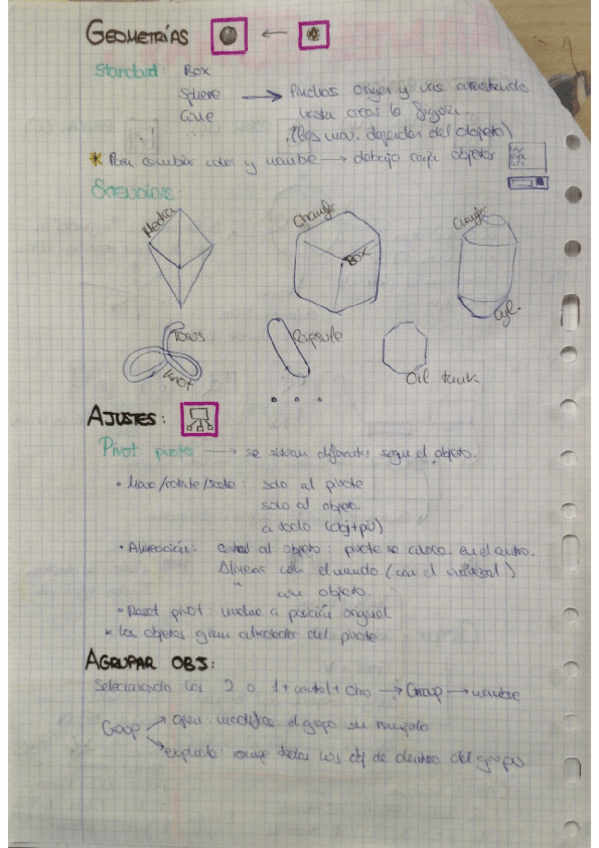 GEOMETRÍAS
Standard: Box
Sphere → Pinchas origen y vas arrastrando
Cone hasta crear la figura.
(los mov. dependen del objeto)
* Para cambiar color y nombre → debajo caja objetos
Extendidas:
Hedra
Chamfer Box
Chamfer Cyl.
Torus Knot
Capsule
Oil tank
...
AJUSTES:
Pivot pivotes → se sitúan diferentes según el objeto.
• Move/rotate/scale: solo al pivote
solo al objeto.
a todo (obj+piv)
• Alineación: central al objeto: pivote se coloca en el centro.
Alinear con el mundo (con el universal)
" con objeto.
• Reset pivot: vuelve a posición original
* los objetos giran alrededor del pivote
AGRUPAR OBJ:
Seleccionando los 2 o 1+control+otro → Group → nombre
Group → open: modifica el grupo sin romperlo
→ explode: rompe todos los obj de dentro del grupo